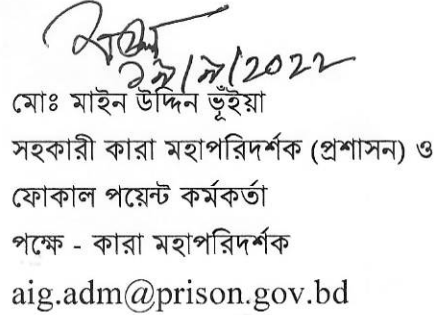 মোঃ মাইন উদ্দিন ভূঁইয়া
সহকারী কারা মহাপরিদর্শক (প্রশাসন) ও
ফোকাল পয়েন্ট কর্মকর্তা
পক্ষে - কারা মহাপরিদর্শক
aig.adm@prison.gov.bd